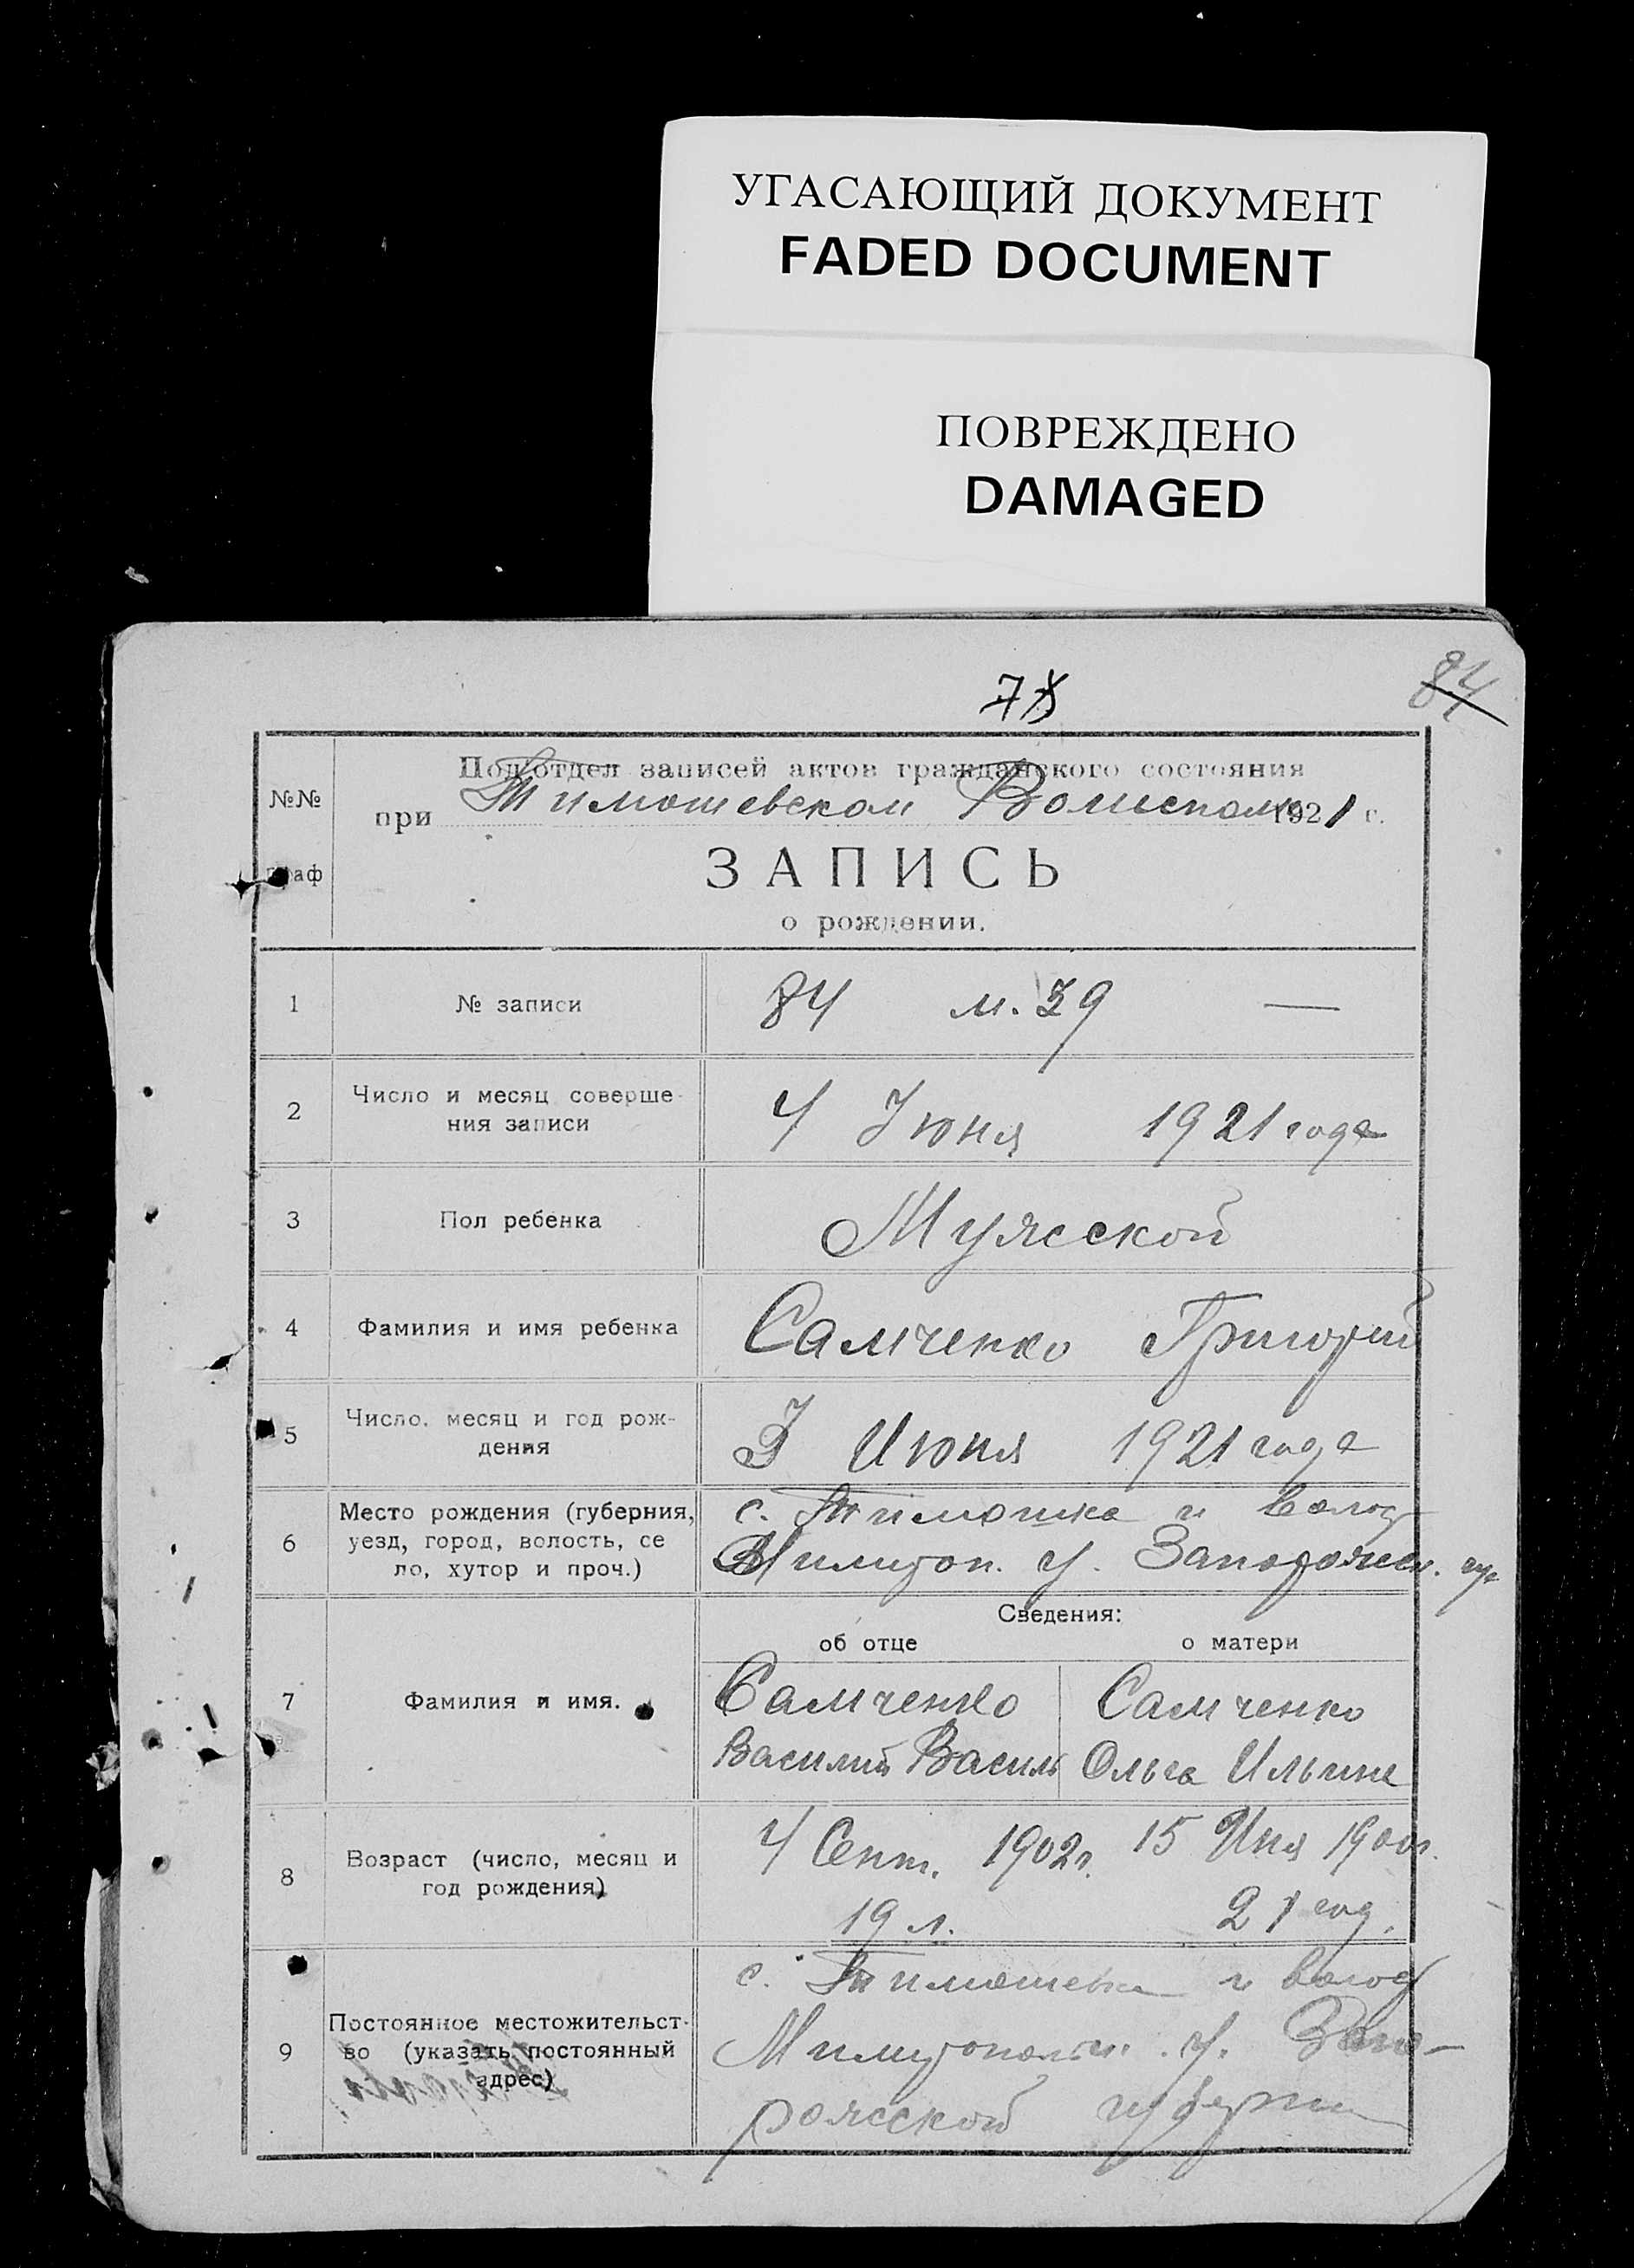 УГАСАЮЩИЙ ДОКУМЕНТ
FADED DOCUMENT
ПОВРЕЖДЕНО
DAMAGED
84
№№
граф
Подотдел записей актов гражданского состояния
при Тимошевском Волисполк 1921 г.
ЗАПИСЬ
о рождении.
1 № записи 84 м. 39 —
2 Число и месяц соверше-
ния записи
4 Июня 1921 года
3 Пол ребенка Мужской
4 Фамилия и имя ребенка Самченко Григорий
5 Число, месяц и год рож-
дения
3 Июня 1921 года
6 Место рождения (губерния,
уезд, город, волость, се
ло, хутор и проч.)
с. Тимошка и волос
Милитоп. у. Запорожск. гу
Сведения:
об отце о матери
7 Фамилия и имя.
Самченко Самченко
Василий Василь Ольга Ильин
8 Возраст (число, месяц и
год рождения)
4 Сент. 1902 г. 15 Июя 1900 г.
19 л. 21 год.
9 Постоянное местожительст-
во (указать постоянный
адрес)
с. Тимошевка и волос
Милитопольск. у. Запо-
рожской губерни